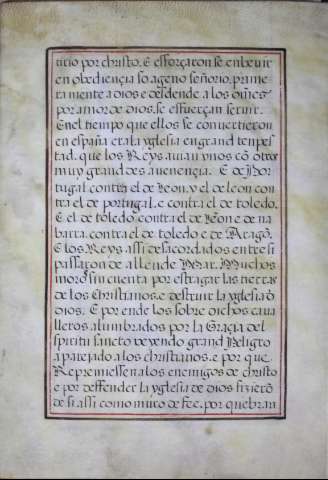 tirio por christo. E esforçaron se en beuir
en obediençia so ageno señorio, prime-
ramente a dios e dessende a los om̃es
por amor de dios, se esfuerçan seruir.
En el tiempo que ellos se conuertieron
en españa era la yglesia en grand tenpes-
tad. que los Reys auian vnos cõ otros
muy grandes auenençia. E de Por-
tugal contra el de leon. y el de leon con-
tra el de portugal. e contra el de toledo.
E el de toledo contra el de leone e de na-
barra. contra el de toledo e de Aragõ.
E los Reys assi desacordados entre si
passarõn de allende Mar. Muchos
moros sin cuenta por estragar las tierras
de los christianos. e destruir la yglesia đ
dios. E por ende los sobre dichos caua-
lleros alumbrados por la Graçia del
spiritu sancto veyendo grand Peligro
aparejado a los christianos. e por que
Repremiessen a los enemigos de christo
e por deffender la yglesia de dios fizierõ
de si assi como muro de fee. por quebran